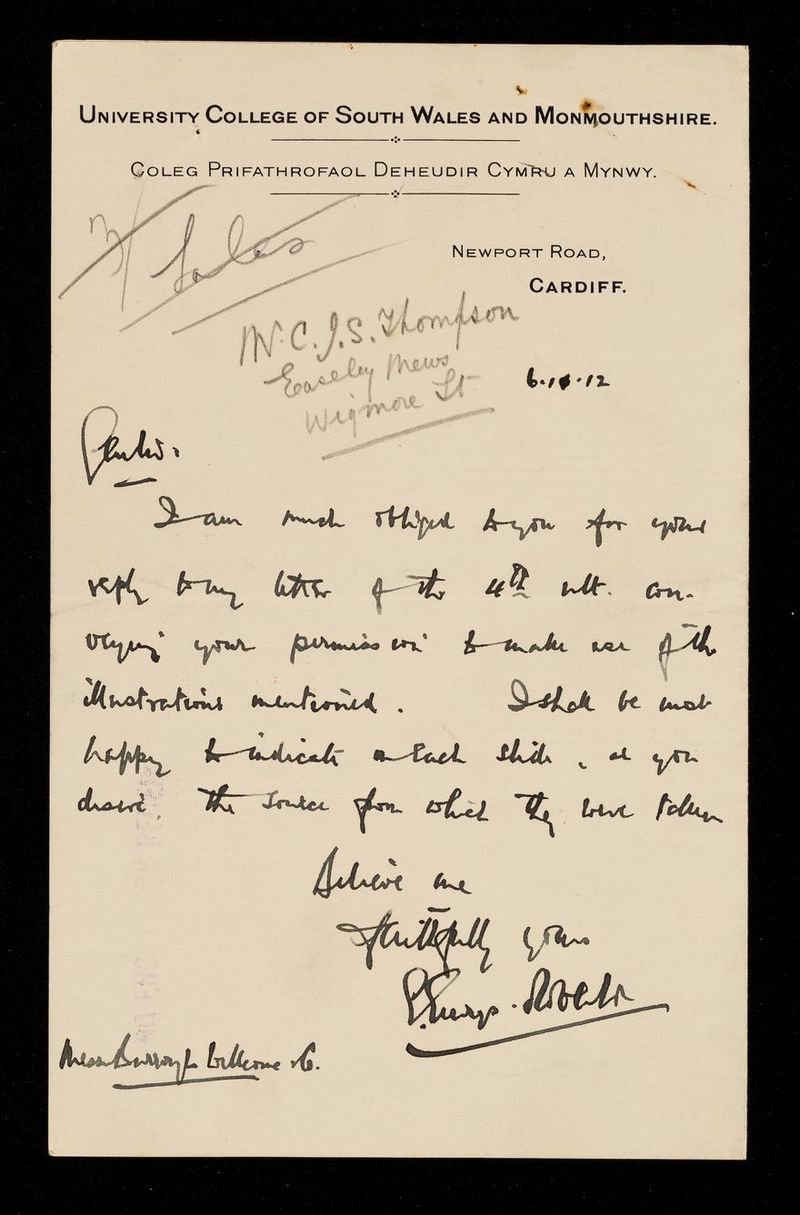 UNIVERSITY COLLEGE OF SOUTH WALES AND MONMOUTHSHIRE.
COLEG PRIFATHROFAOL DEHEUDIR CYMRU A MYNWY.
NEWPORT ROAD,
CARDIFF.
Mr. C. J. S. Thompson
Easeley Mews
Wigmore St
6.10.12
I am much obliged to you for your
reply to my letter of the 4th ult. con-
veying your permission to make use of the
illustrations mentioned. I shall be most
happy to indicate on each slide, as you
desire, the source from which they were taken
Believe me
Faithfully yours
Messrs Burroughs Wellcome & Co.